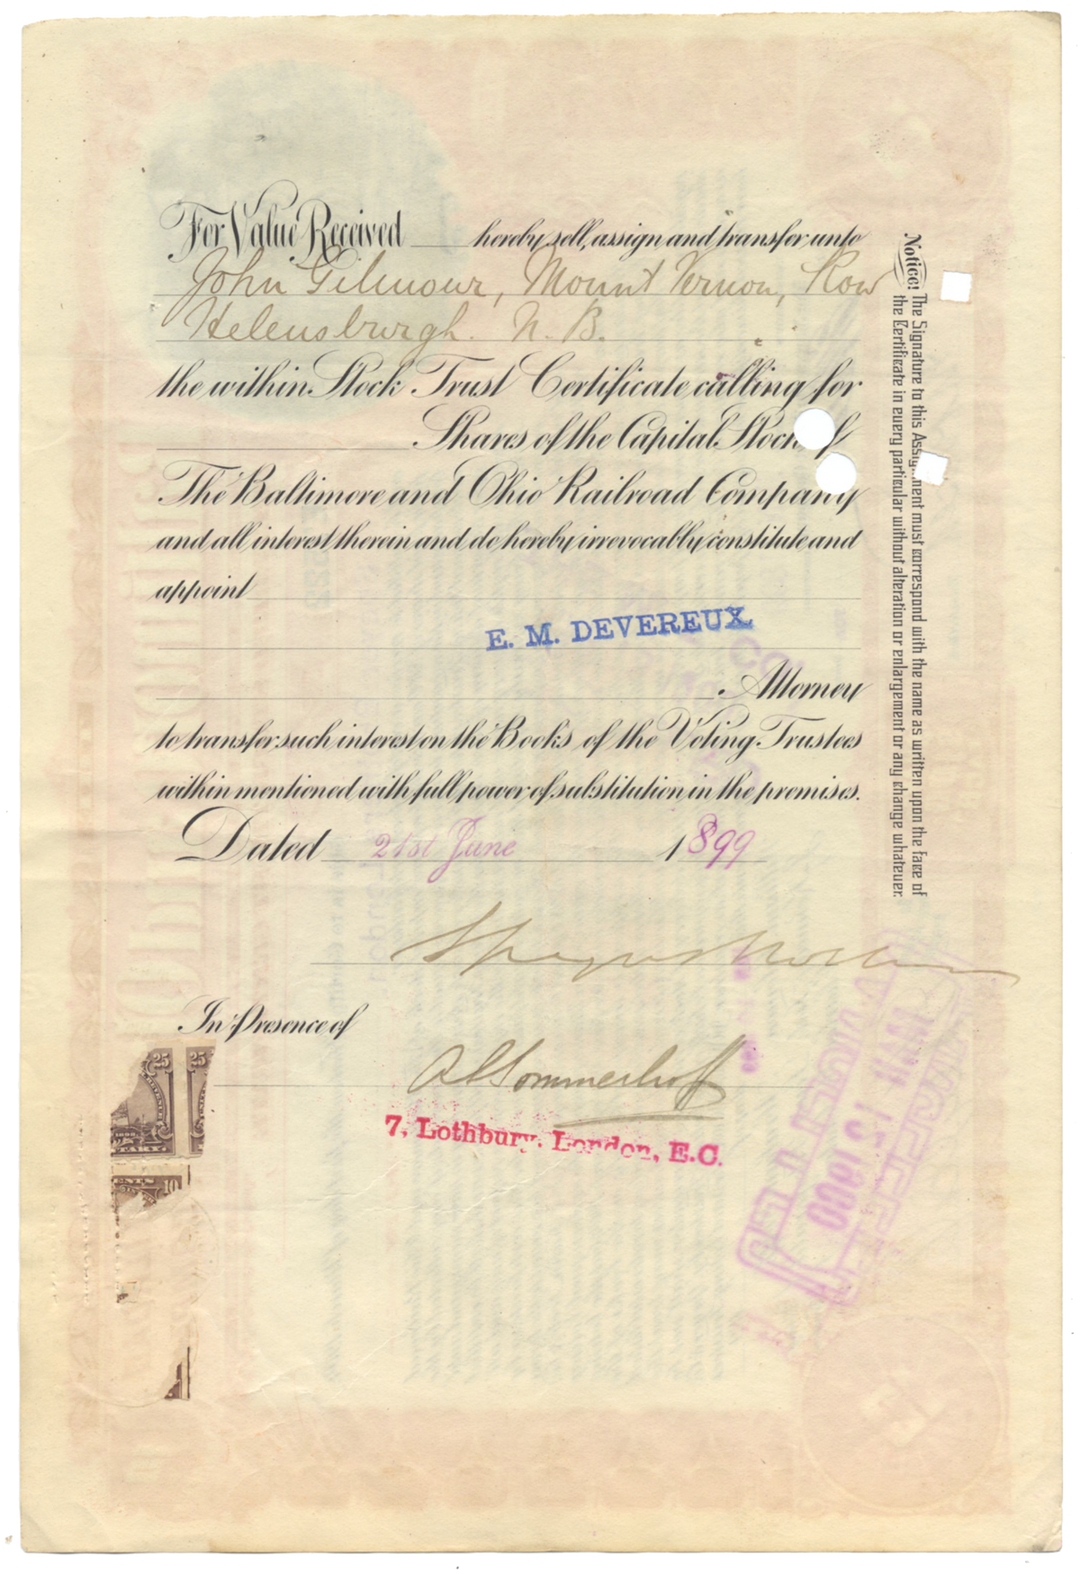 For Value Received hereby sell, assign and transfer unto
John Gilmour, Mount Vernon, Row
Helensburgh. N. B.
the within Stock Trust Certificate calling for
Shares of the Capital Stock of
The Baltimore and Ohio Railroad Company
and all interest therein and do hereby irrevocably constitute and
appoint
E. M. DEVEREUX.
Attorney
to transfer such interest on the Books of the Voting Trustees
within mentioned with full power of substitution in the premises.
Dated 21st June 1899
In Presence of
A Sommerhoff
7, Lothbury. London, E.C.
Notice! The Signature to this Assignment must correspond with the name as written upon the face of
the Certificate in every particular without alteration or enlargement or any change whatever.
25
25
10
1900